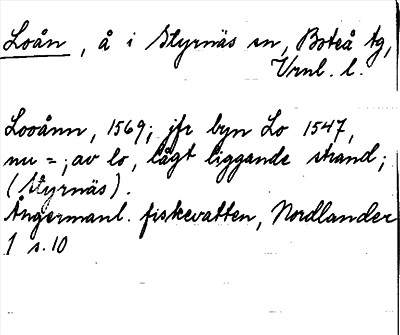 Loån, å i Styrnäs sn, Boteå tg,
Vrnl. l.
Looånn, 1569; jfr byn Lo 1547,
nu =; av lo, lågt liggande strand;
(Styrnäs).
Ångermanl. fiskevatten, Nordlander
1 s. 10